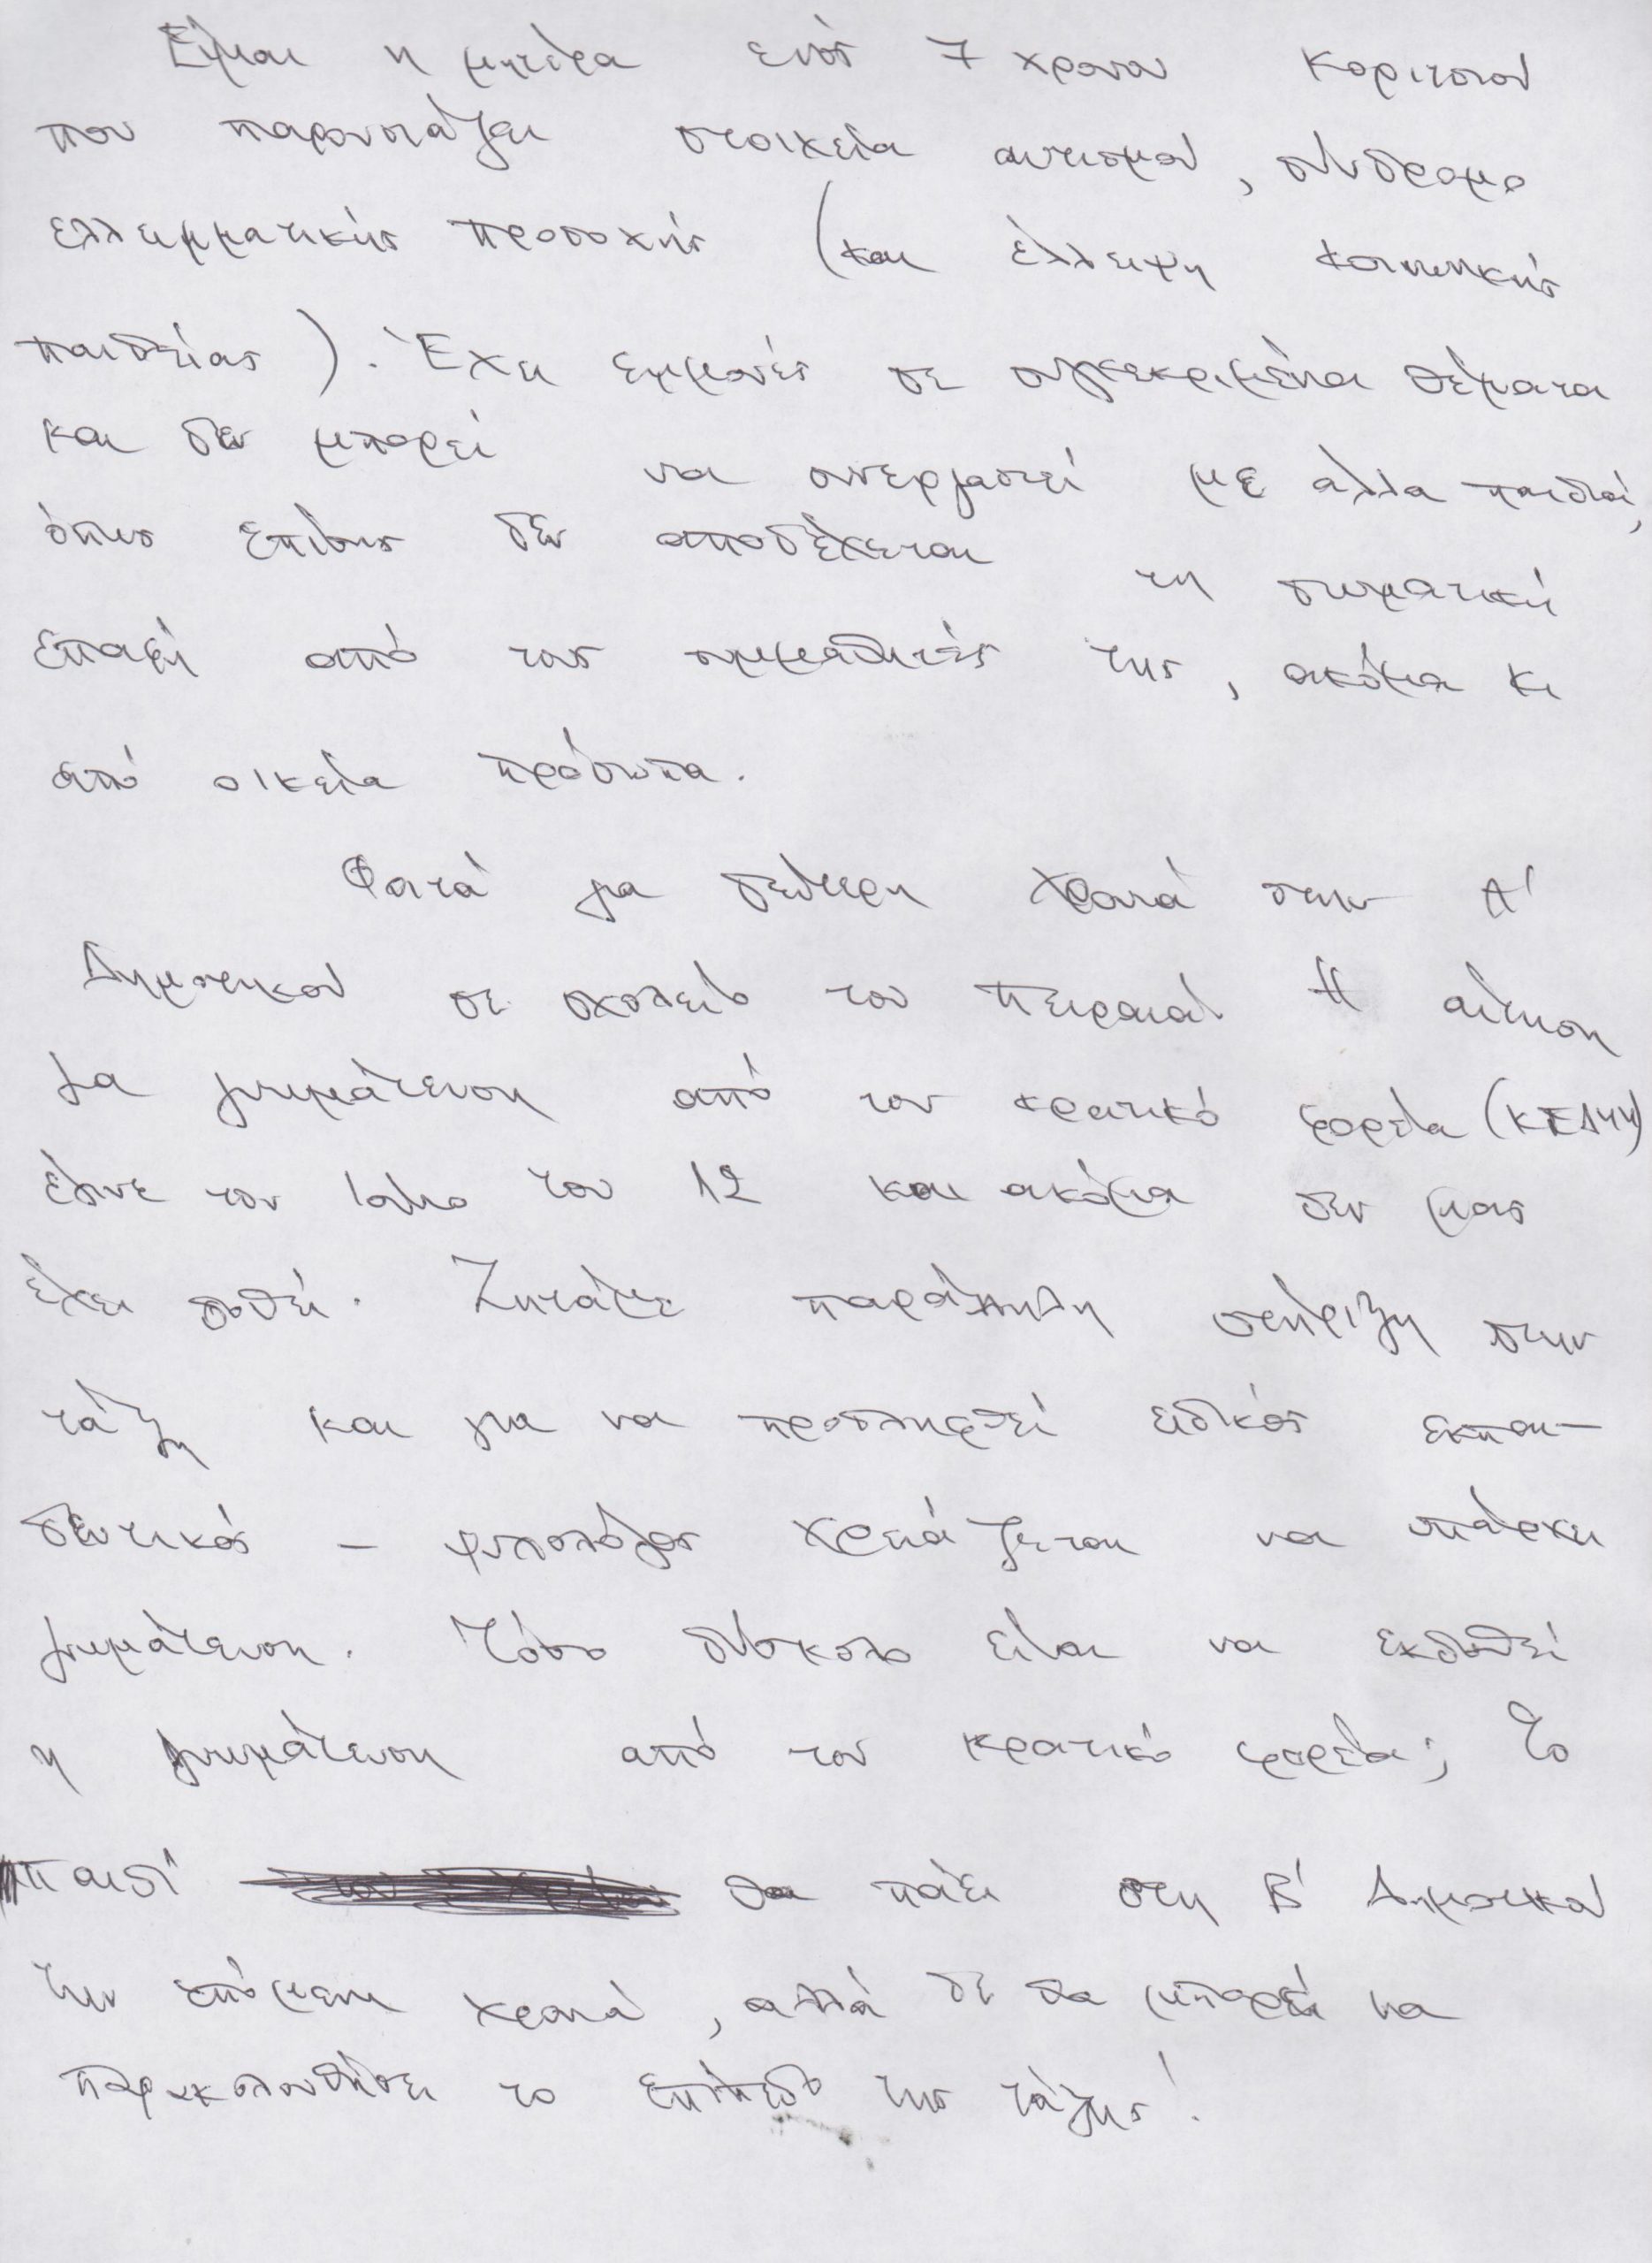 Είμαι η μητέρα ενός 7 χρονου κοριτσιού
που παρουσιάζει στοιχεία αυτισμού, σύνδρομο
ελλειμματικής προσοχής (και έλλειψη κοινωνικής
παιδείας). Έχει εμμονές σε συγκεκριμένα θέματα
και δεν μπορεί να συνεργαστεί με άλλα παιδιά,
όπως επίσης δεν αποδέχεται τη σωματική
επαφή από τους συμμαθητές της, ακόμα κι
από οικεία πρόσωπα.
Φοιτά για δεύτερη χρονιά στην Α'
Δημοτικού σε σχολείο του Πειραιά. Η αίτηση
για γνωμάτευση από τον κρατικό φορέα (ΚΕΔΔΥ)
έγινε τον Ιούνιο του 12 και ακόμα δεν μας
έχει δοθεί. Ζητάμε παράλληλη στήριξη στην
τάξη και για να προσληφθεί ειδικός εκπαι-
δευτικός - ψυχολόγος χρειάζεται να υπάρχει
γνωμάτευση. Τόσο δύσκολο είναι να εκδοθεί
η γνωμάτευση από τον κρατικό φορέα; Το
παιδί θα πάει στη Β' Δημοτικού
την επόμενη χρονιά, αλλά δε θα μπορεί να
παρακολουθήσει το επίπεδο της τάξης!